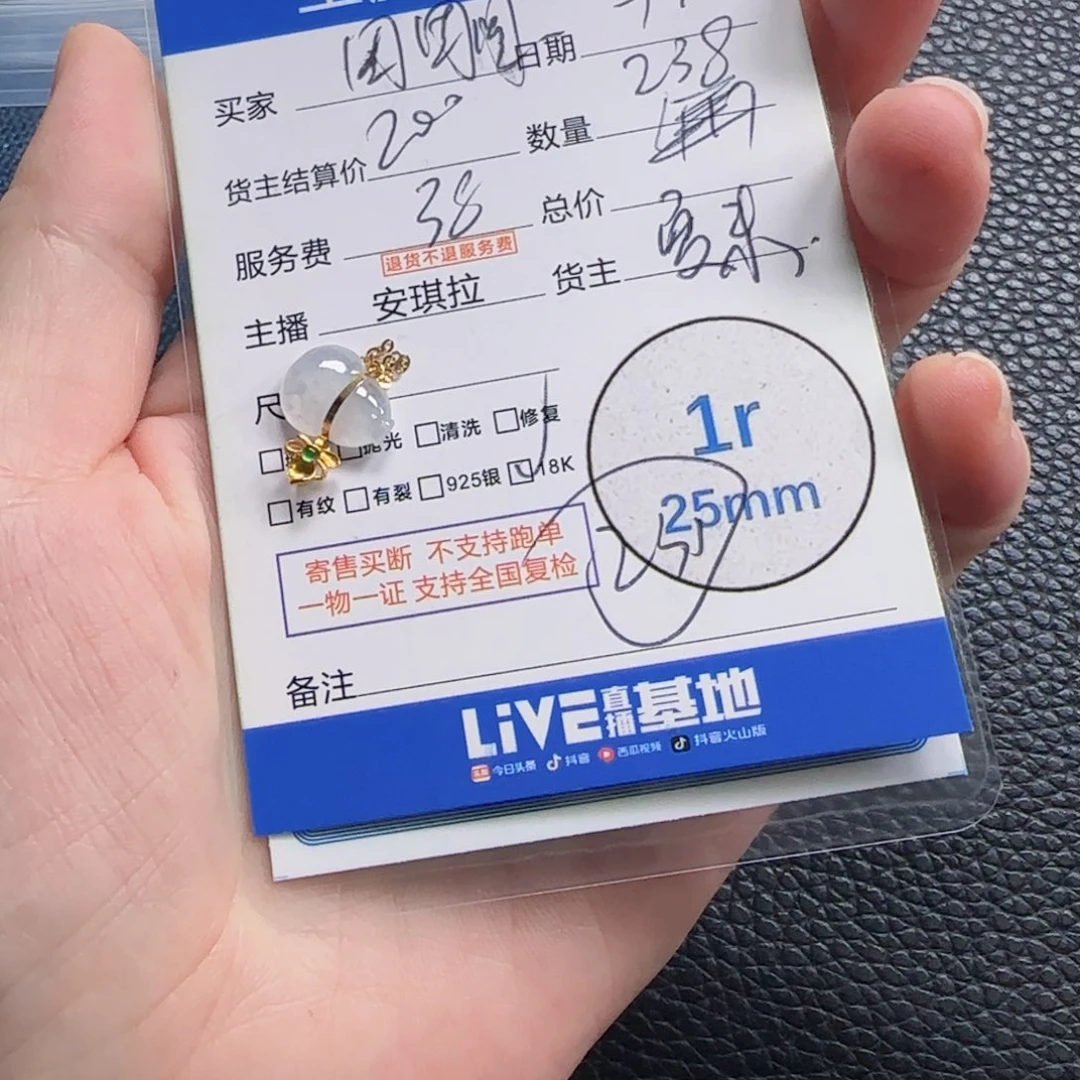 买家 日期
货主结算价 200 数量 238
服务费 38 总价
退货不退服务费
主播 安琪拉 货主
尺
抛光 清洗 修复
有纹 有裂 925银 18K
1r
25mm
寄售买断 不支持跑单
一物一证 支持全国复检
备注
LiVE直播基地
今日头条 抖音 西瓜视频 抖音火山版